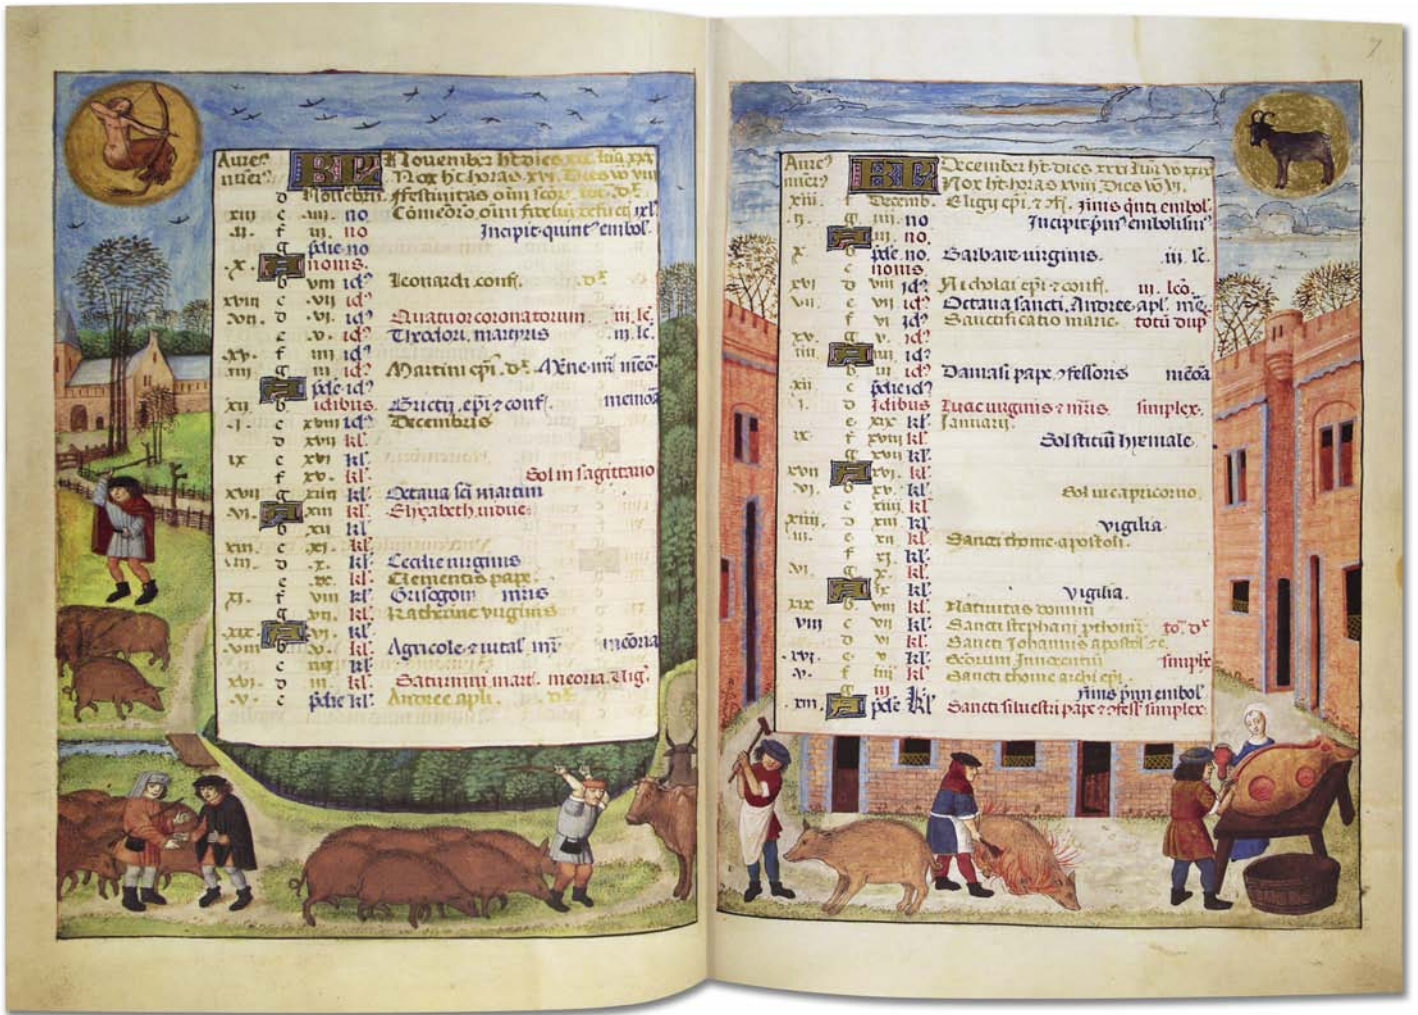 Aure? KL November ht dies xxx lūa xxx
nuer? Nox ht horas xvi Dies vo viii
d Novēbris. ffestivitas oīm scōr. tot. dx.
xiii e .iiii. no Cōmeōro oīm fideliū defūct
.ii. f iii. no Incipit quint? embol?
g pdie no
.x. A nonis.
b viii id? Leonardi conf. dx
xviii c .vii id?
.vii. d .vi. id? Quatuor coronatorum .iii. lc.
e .v. id? Theodori. martyris .iii. lc.
.xv. f iiii id?
iiii g iii id? Martini epī. dx. Mēne mr̄ meō
A pdie id?
xii b idibus. Bricii. epī z conf. memoā
.i. c xviii kl? Decembris
d xvii kl.
ix e xvi kl.
f xv. kl. Sol in sagittario
xvii g xiiii kl. Octava scī martini
.vi. A xiii kl. Elyzabeth. vidue.
b xii kl
xiiii c .xi. kl.
.iii. d .x. kl. Cecilie virginis
e ix. kl. Clementis pape.
.xi. f viii kl. Grisogoni mr̄is
g vii. kl. Katherine virginis
.xix. A vi. kl.
.viii b .v. kl. Agricole z vital mr̄ meōria
c iiii kl.
.xvi. d iii. kl. Saturnini. mart. meoria. Vig?
.v. e pdie kl. Andree apli. dx.
7
Aure? KL December ht dies xxxi lūa vo xxix
nuer? Nox ht horas xviii Dies vo vi.
xiii. f Decemb. Eligii epī. z cf. finis qnti embol.
.ii. g iiii no Incipit pm? embolism?
A iii. no.
x b pdie no. Barbare virginis. iii lc.
c nonis
xvi d viii id? Nicholai epī z conf. iii. lcō.
.v. e vii id? Octava sancti. Andree apl. mē.
f vi id? Sanctificatio marie totū dup
xv. g v. id?
iiii A iiii id?
b iii id? Damasi pape z fessoris meōa
xii c pdie id?
.i. d Idibus Lucie virginis z mr̄is simplex.
e xix kl. Januarii.
ix f xviii kl. Solsticiū hyemale.
g xvii kl.
xvii A xvi. kl.
.vi. b xv. kl. Sol in capricorno.
c xiiii kl.
xiiii. d xiii kl. vigilia.
iii. e xii kl. Sancti thome apostoli.
f xi kl.
.xi. g x. kl.
A ix kl. vigilia.
xix b viii kl. Nativitas domini
viii c vii kl. Sancti stephani pthom? to. dx
d vi kl. Sancti Johannis apostoli z e.
.xvi. e v kl. Scōrum Innocentiū simplx
.v. f iiii kl. Sancti thome archi epī.
g iii kl. finis pmi embol?
.xiii. A pdie kl Sancti silvestri pape z fess? simplex